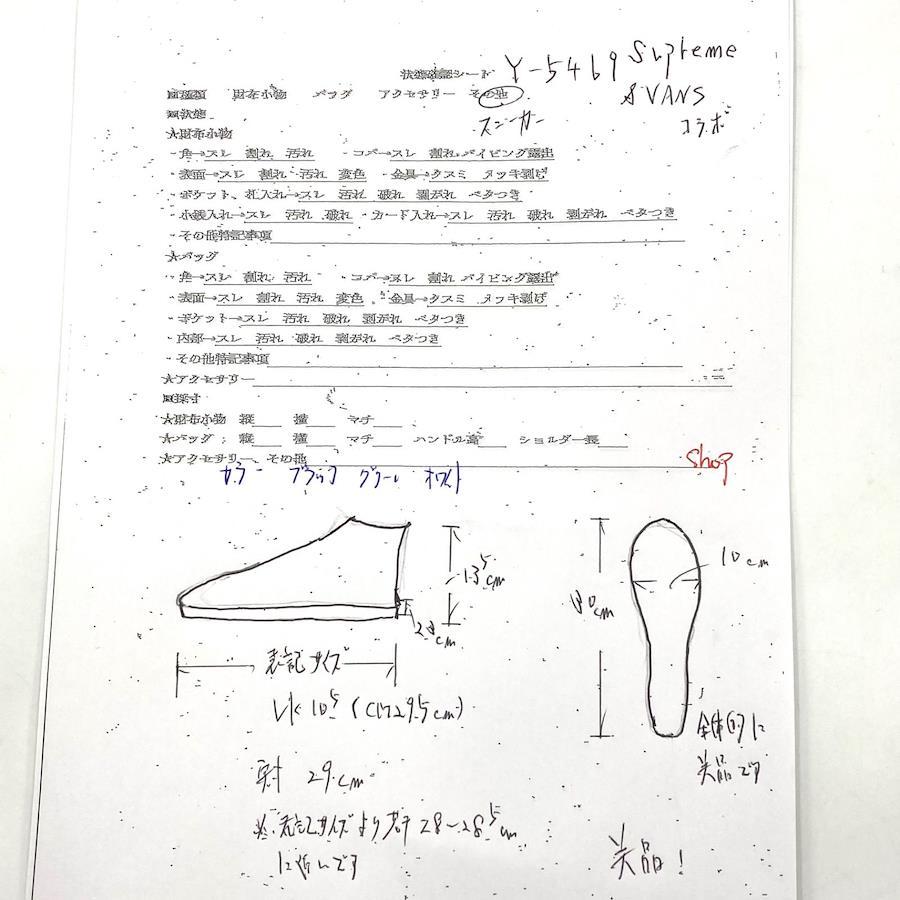 状態確認シート Y-5469 Supreme
■種類 財布小物 バッグ アクセサリー その他 & VANS
■状態 スニーカー コラボ
★財布小物
・角→スレ 割れ 汚れ ・コバ→スレ 割れ パイピング露出
・表面→スレ 割れ 汚れ 変色 ・金具→クスミ メッキ剥げ
・ポケット、札入れ→スレ 汚れ 破れ 剥がれ ベタつき
・小銭入れ→スレ 汚れ 破れ ・カード入れ→スレ 汚れ 破れ 剥がれ ベタつき
・その他特記事項
★バッグ
・角→スレ 割れ 汚れ ・コバ→スレ 割れ パイピング露出
・表面→スレ 割れ 汚れ 変色 ・金具→クスミ メッキ剥げ
・ポケット→スレ 汚れ 破れ 剥がれ ベタつき
・内部→スレ 汚れ 破れ 剥がれ ベタつき
・その他特記事項
★アクセサリー
■採寸
★財布小物 縦 横 マチ
★バッグ : 縦 横 マチ ハンドル高 ショルダー長
★アクセサリー、その他
shop
カラー ブラック グリーン ホワイト
13.5cm
10cm
30cm
表記サイズ
US 10.5 (CM29.5cm)
全体的に
美品です
実寸 29cm
※表記サイズより若干 28~28.5cm
に近いです
美品!